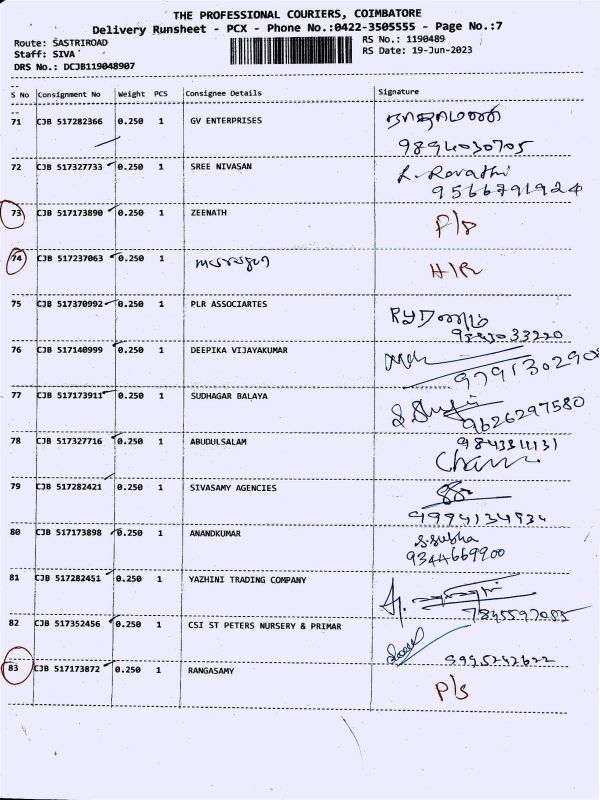 THE PROFESSIONAL COURIERS, COIMBATORE
Delivery Runsheet - PCX - Phone No.:0422-3505555 - Page No.:7
Route: SASTRIROAD
RS No.: 1190489
Staff: SIVA
RS Date: 19-Jun-2023
DRS No.: DCJB119048907
S No Consignment No Weight PCS Consignee Details Signature
71 CJB 517282366 0.250 1 GV ENTERPRISES
9894030705
72 CJB 517327733 0.250 1 SREE NIVASAN R. Revathi
9566791924
73 CJB 517173890 0.250 1 ZEENATH
74 CJB 517237063 0.250 1 H/R
75 CJB 517370992 0.250 1 PLR ASSOCIARTES
76 CJB 517140999 0.250 1 DEEPIKA VIJAYAKUMAR
9791302908
77 CJB 517173911 0.250 1 SUDHAGAR BALAYA
9626297580
78 CJB 517327716 0.250 1 ABUDULSALAM
79 CJB 517282421 0.250 1 SIVASAMY AGENCIES
80 CJB 517173898 0.250 1 ANANDKUMAR S.Subha
9344669900
81 CJB 517282451 0.250 1 YAZHINI TRADING COMPANY
82 CJB 517352456 0.250 1 CSI ST PETERS NURSERY & PRIMAR
83 CJB 517173872 0.250 1 RANGASAMY
P/s